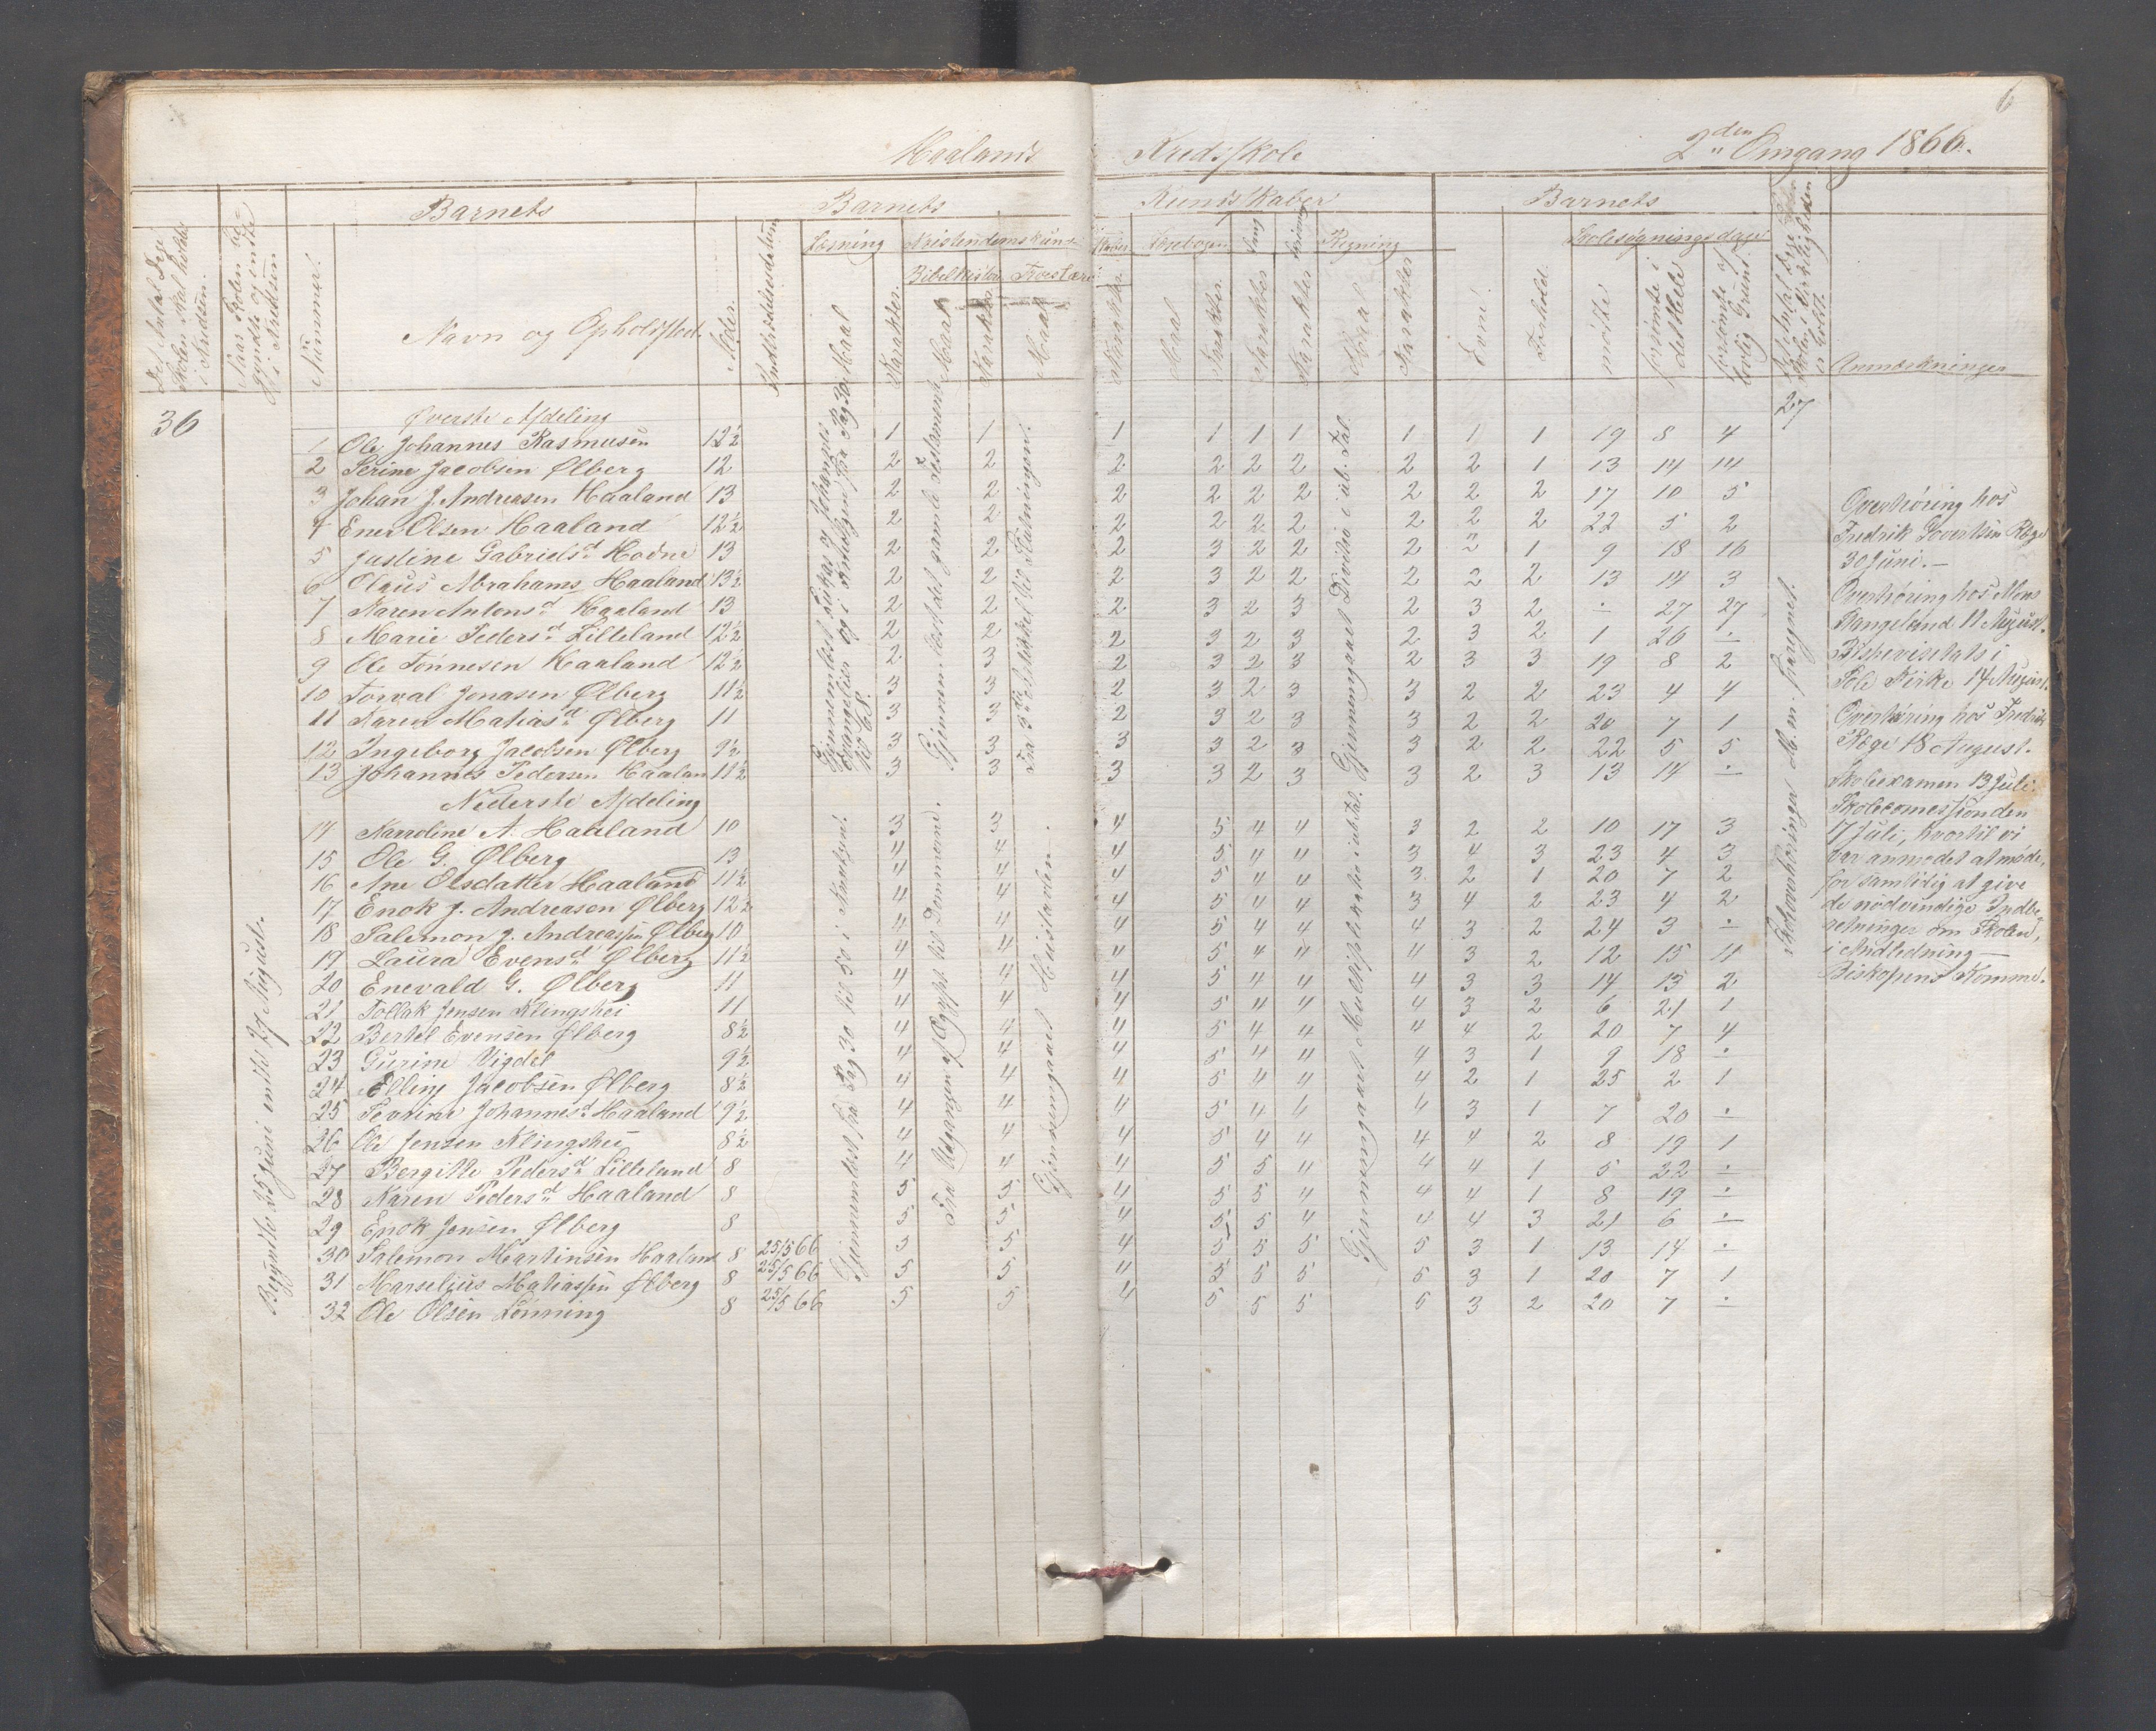 6
Haalands Kredsskole 2den Omgang 1866.
Barnets Barnets Kundskaber Barnets
Det Antal Dage Skolen skal holdes i Kredsen.
Naar Skolen begyndte og endte i Kredsen
Nummer.
Navn og Opholdssted.
Alder.
Læsning Kristendomskund- Læsebogen Sang Skrivning Regning Skolesøgningsdage
Bibelhistorie Troeslære
Maal Karakter. Maal Karakter. Maal Karakter. Maal Karakter. Karakter Karakter Maal Karakter
Evne. Forhold. mødte forsømte i det Hele forsømte af lovlig Grund.
Anmærkninger
36
27
Øverste Afdeling
1 Ole Johannes Rasmusen 12½ 1 1 1 1 1 1 1 1 1 19 8 4
2 Serine Jacobsen Ølberg 12 2 2 2 2 2 2 2 2 1 13 14 14
3 Johan J. Andreasen Haaland 13 2 2 2 2 2 2 2 2 2 17 10 5
4 Ener Olsen Haaland 12½ 2 2 2 2 2 2 2 2 2 22 5 2
5 Justine Gabrielsd. Hodne 13 2 2 2 3 2 2 2 2 1 9 18 16
6 Olaus Abrahams. Haaland 13½ 2 2 2 3 2 2 2 2 2 13 14 3
7 Karen Antonsd. Haaland 13 2 2 2 3 2 3 2 3 2 ÷ 27 27
8 Marie Pedersd. Lilleland 12½ 2 2 2 3 2 3 2 3 2 1 26 ÷
9 Ole Tønnesen Haaland 12½ 2 3 2 3 2 3 2 3 3 19 8 2
10 Torval Jonasen Ølberg 11½ 3 3 2 3 2 3 3 2 2 23 4 4
11 Karen Matiasd. Ølberg 11 3 3 2 3 2 3 3 2 2 20 7 1
12 Ingeborg Jacobsen Ølberg 9½ 3 3 3 3 2 3 3 2 2 22 5 5
13 Johannes Pedersen Haalan 11½ 3 3 3 3 2 3 3 2 3 13 14 ÷
Nederste Afdeling
14 Karoline A. Haaland 10 3 3 4 5 4 4 3 2 2 10 17 3
15 Ole G. Ølberg 13 4 4 4 5 4 4 3 4 3 23 4 3
16 Ane Olsdatter Haaland 11½ 4 4 4 5 4 4 3 2 1 20 7 2
17 Enok J. Andreasen Ølberg 12½ 4 4 4 5 4 4 3 4 2 23 4 2
18 Salemon J. Andreassen Ølberg 10 4 4 4 5 4 4 4 3 2 24 3 ÷
19 Laura Evensd. Ølberg 11½ 4 4 4 5 4 4 4 3 2 12 15 11
20 Enevald G. Ølberg 11 4 4 4 5 4 4 4 3 3 14 13 2
21 Tollak Jensen Klingshei 11 4 4 4 5 4 4 4 3 2 6 21 1
22 Bertel Evensen Ølberg 8½ 4 4 4 5 4 4 4 4 2 20 7 4
23 Gurine Vigdel 9½ 4 4 4 5 4 4 4 3 1 9 18 ÷
24 Elling Jacobsen Ølberg 8½ 4 4 4 5 4 4 4 2 1 25 2 1
25 Severine Johannesd. Haaland 9½ 4 4 4 5 4 4 4 3 1 7 20 ÷
26 Ole Jensen Klingshei 8½ 4 4 4 5 4 4 4 4 2 8 19 1
27 Bergitte Pedersd. Lilleland 8 4 4 4 5 5 4 4 4 1 5 22 ÷
28 Karen Pedersd. Haaland 8 5 5 4 5 5 4 4 4 1 8 19 ÷
29 Enok Jensen Ølberg 8 5 5 4 5 5 4 4 4 3 21 6 ÷
30 Salemon Martinsen Haaland 8 25/5 66 5 5 4 5 5 5 5 3 1 13 14 ÷
31 Marselius Matiassen Ølberg 8 25/5 66 5 5 4 5 5 5 5 3 1 20 7 1
32 Ole Olsen Lønning 8 25/5 66 5 5 4 5 5 5 5 3 2 20 7 ÷
Begyndte 25 Juni endte 29 August.
Gjennemlæst Lukas og Johannes Evangelier og i Anhanget fra Pag 30 til 68.
Gjennemlæst fra Pag 30 til 50 i Knudsen.
Gjennemlæst det gamle Testamente.
Fra Udgangen af Ægypt. til Dommerne.
Fra 3die Artikkel til Slutningen.
Gjennemgaaet Huustavlen.
Gjennemgaaet Division i ub. Tal.
Gjennemgaaet Multiplikation i ub. tal.
Overhøring hos
Fredrik Govertsen Røge
30 Juni.—
Overhøring hos Mons
Rangeland 11 August.
Bispevisitats i
Sole Kirke 14 August.
Overhøring hos Fredrik
Røge 18 August.
Skoleexamen 13 Juli.
Skolecomessionden
17 Juli, hvortil vi
var anmodet at møde,
for samtidig at give
de nødvendige Indbe-
retninger om Skolen,
i Anledning
Biskopens Komme.